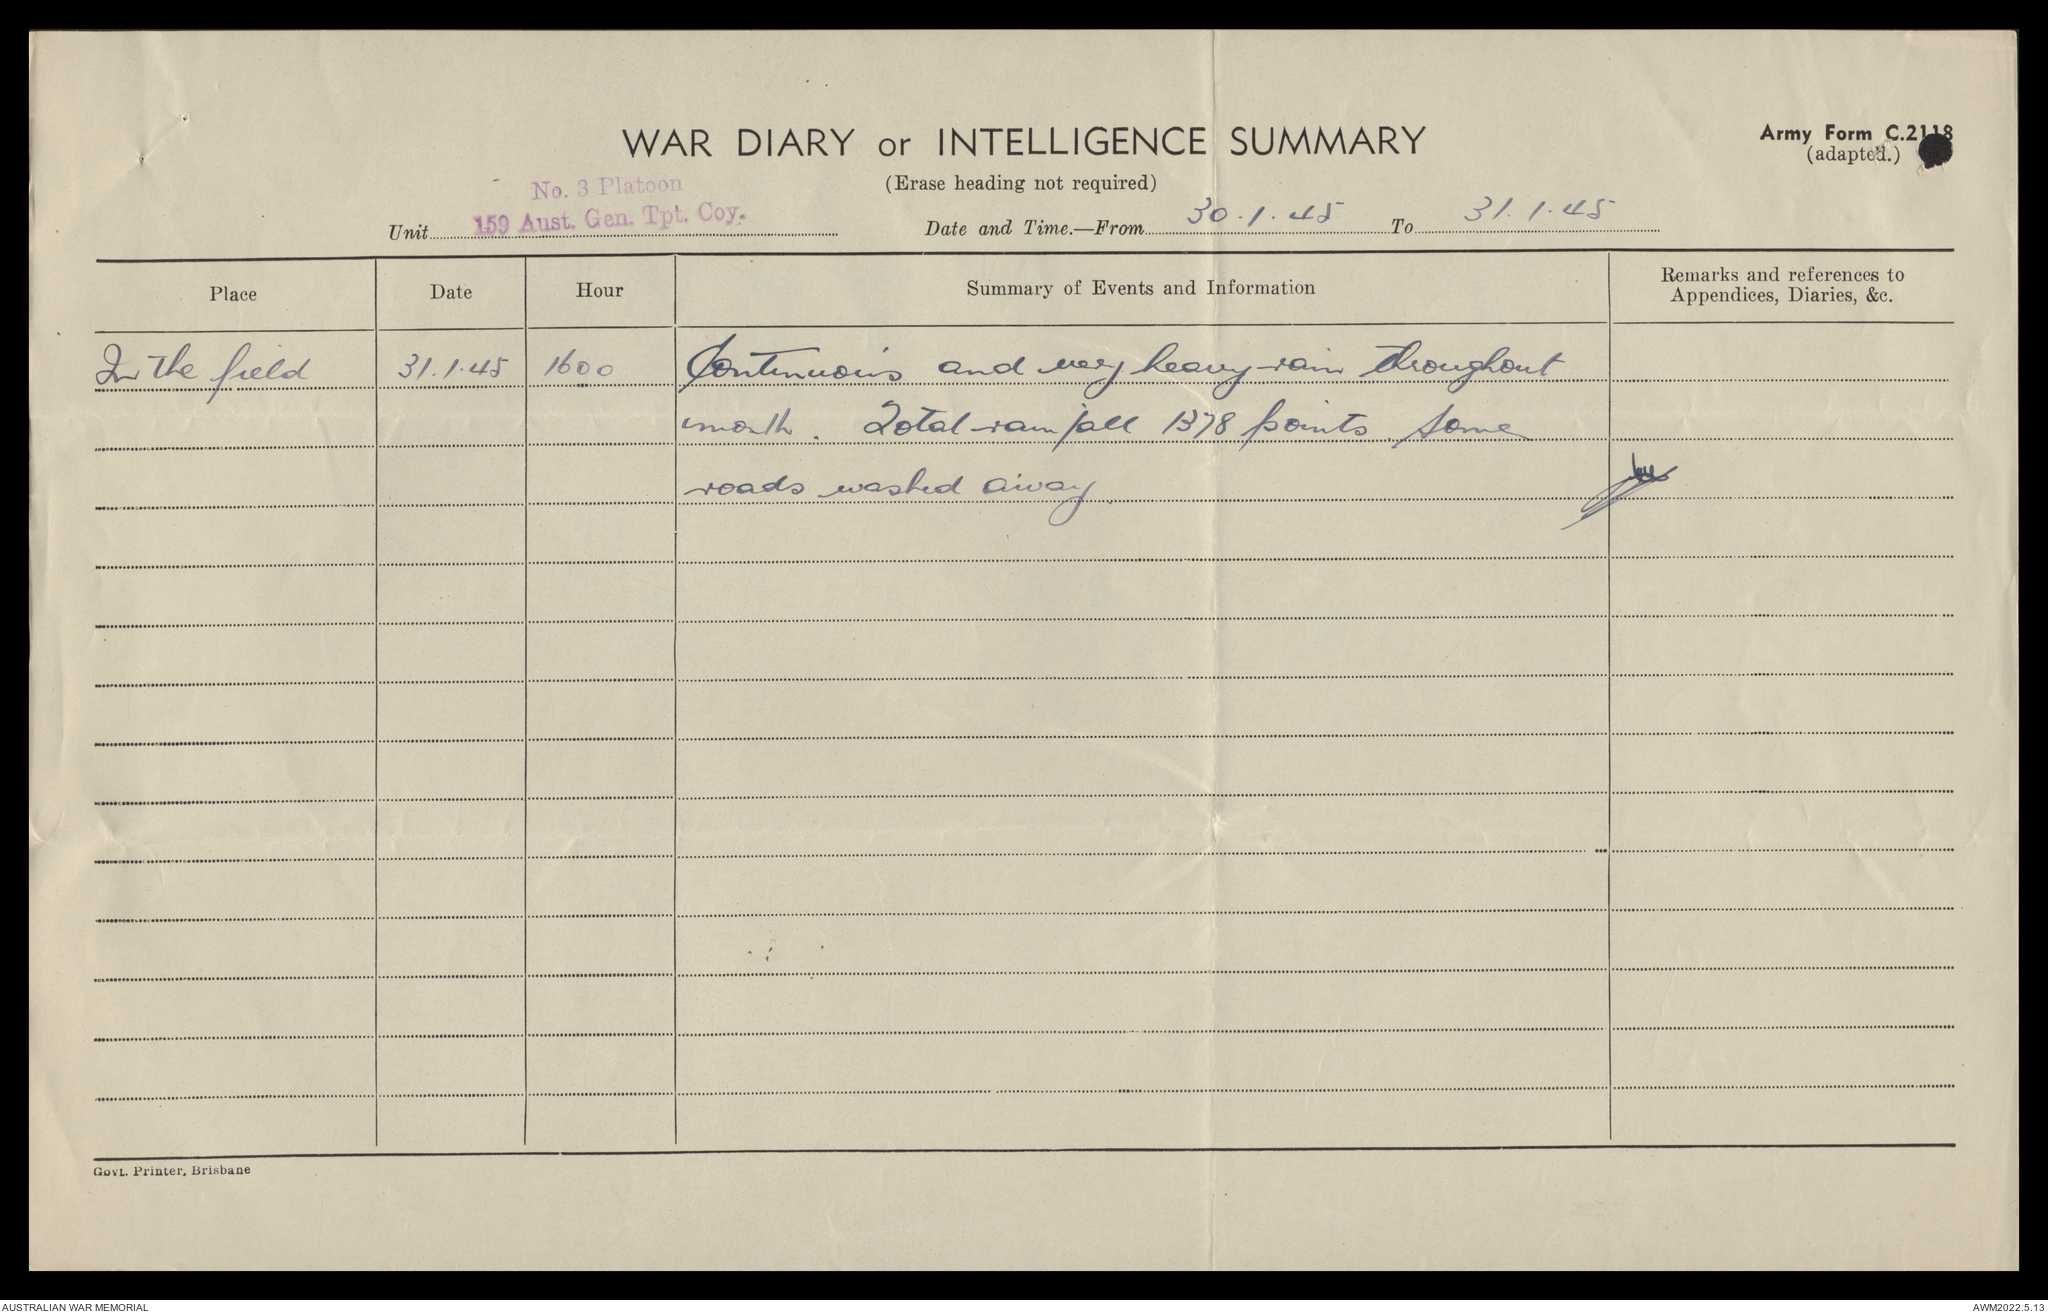 WAR DIARY or INTELLIGENCE SUMMARY
Army Form C.2118
(adapted.)
(Erase heading not required)
No. 3 Platoon
Unit 159 Aust. Gen. Tpt. Coy.
Date and Time.—From 30.1.45 To 31.1.45
Place Date Hour Summary of Events and Information Remarks and references to
Appendices, Diaries, &c.
In the field 31.1.45 1600 Continuous and very heavy rain throughout
month. Total rainfall 1378 points Some
roads washed away
Govt. Printer, Brisbane
AUSTRALIAN WAR MEMORIAL
AWM2022.5.13